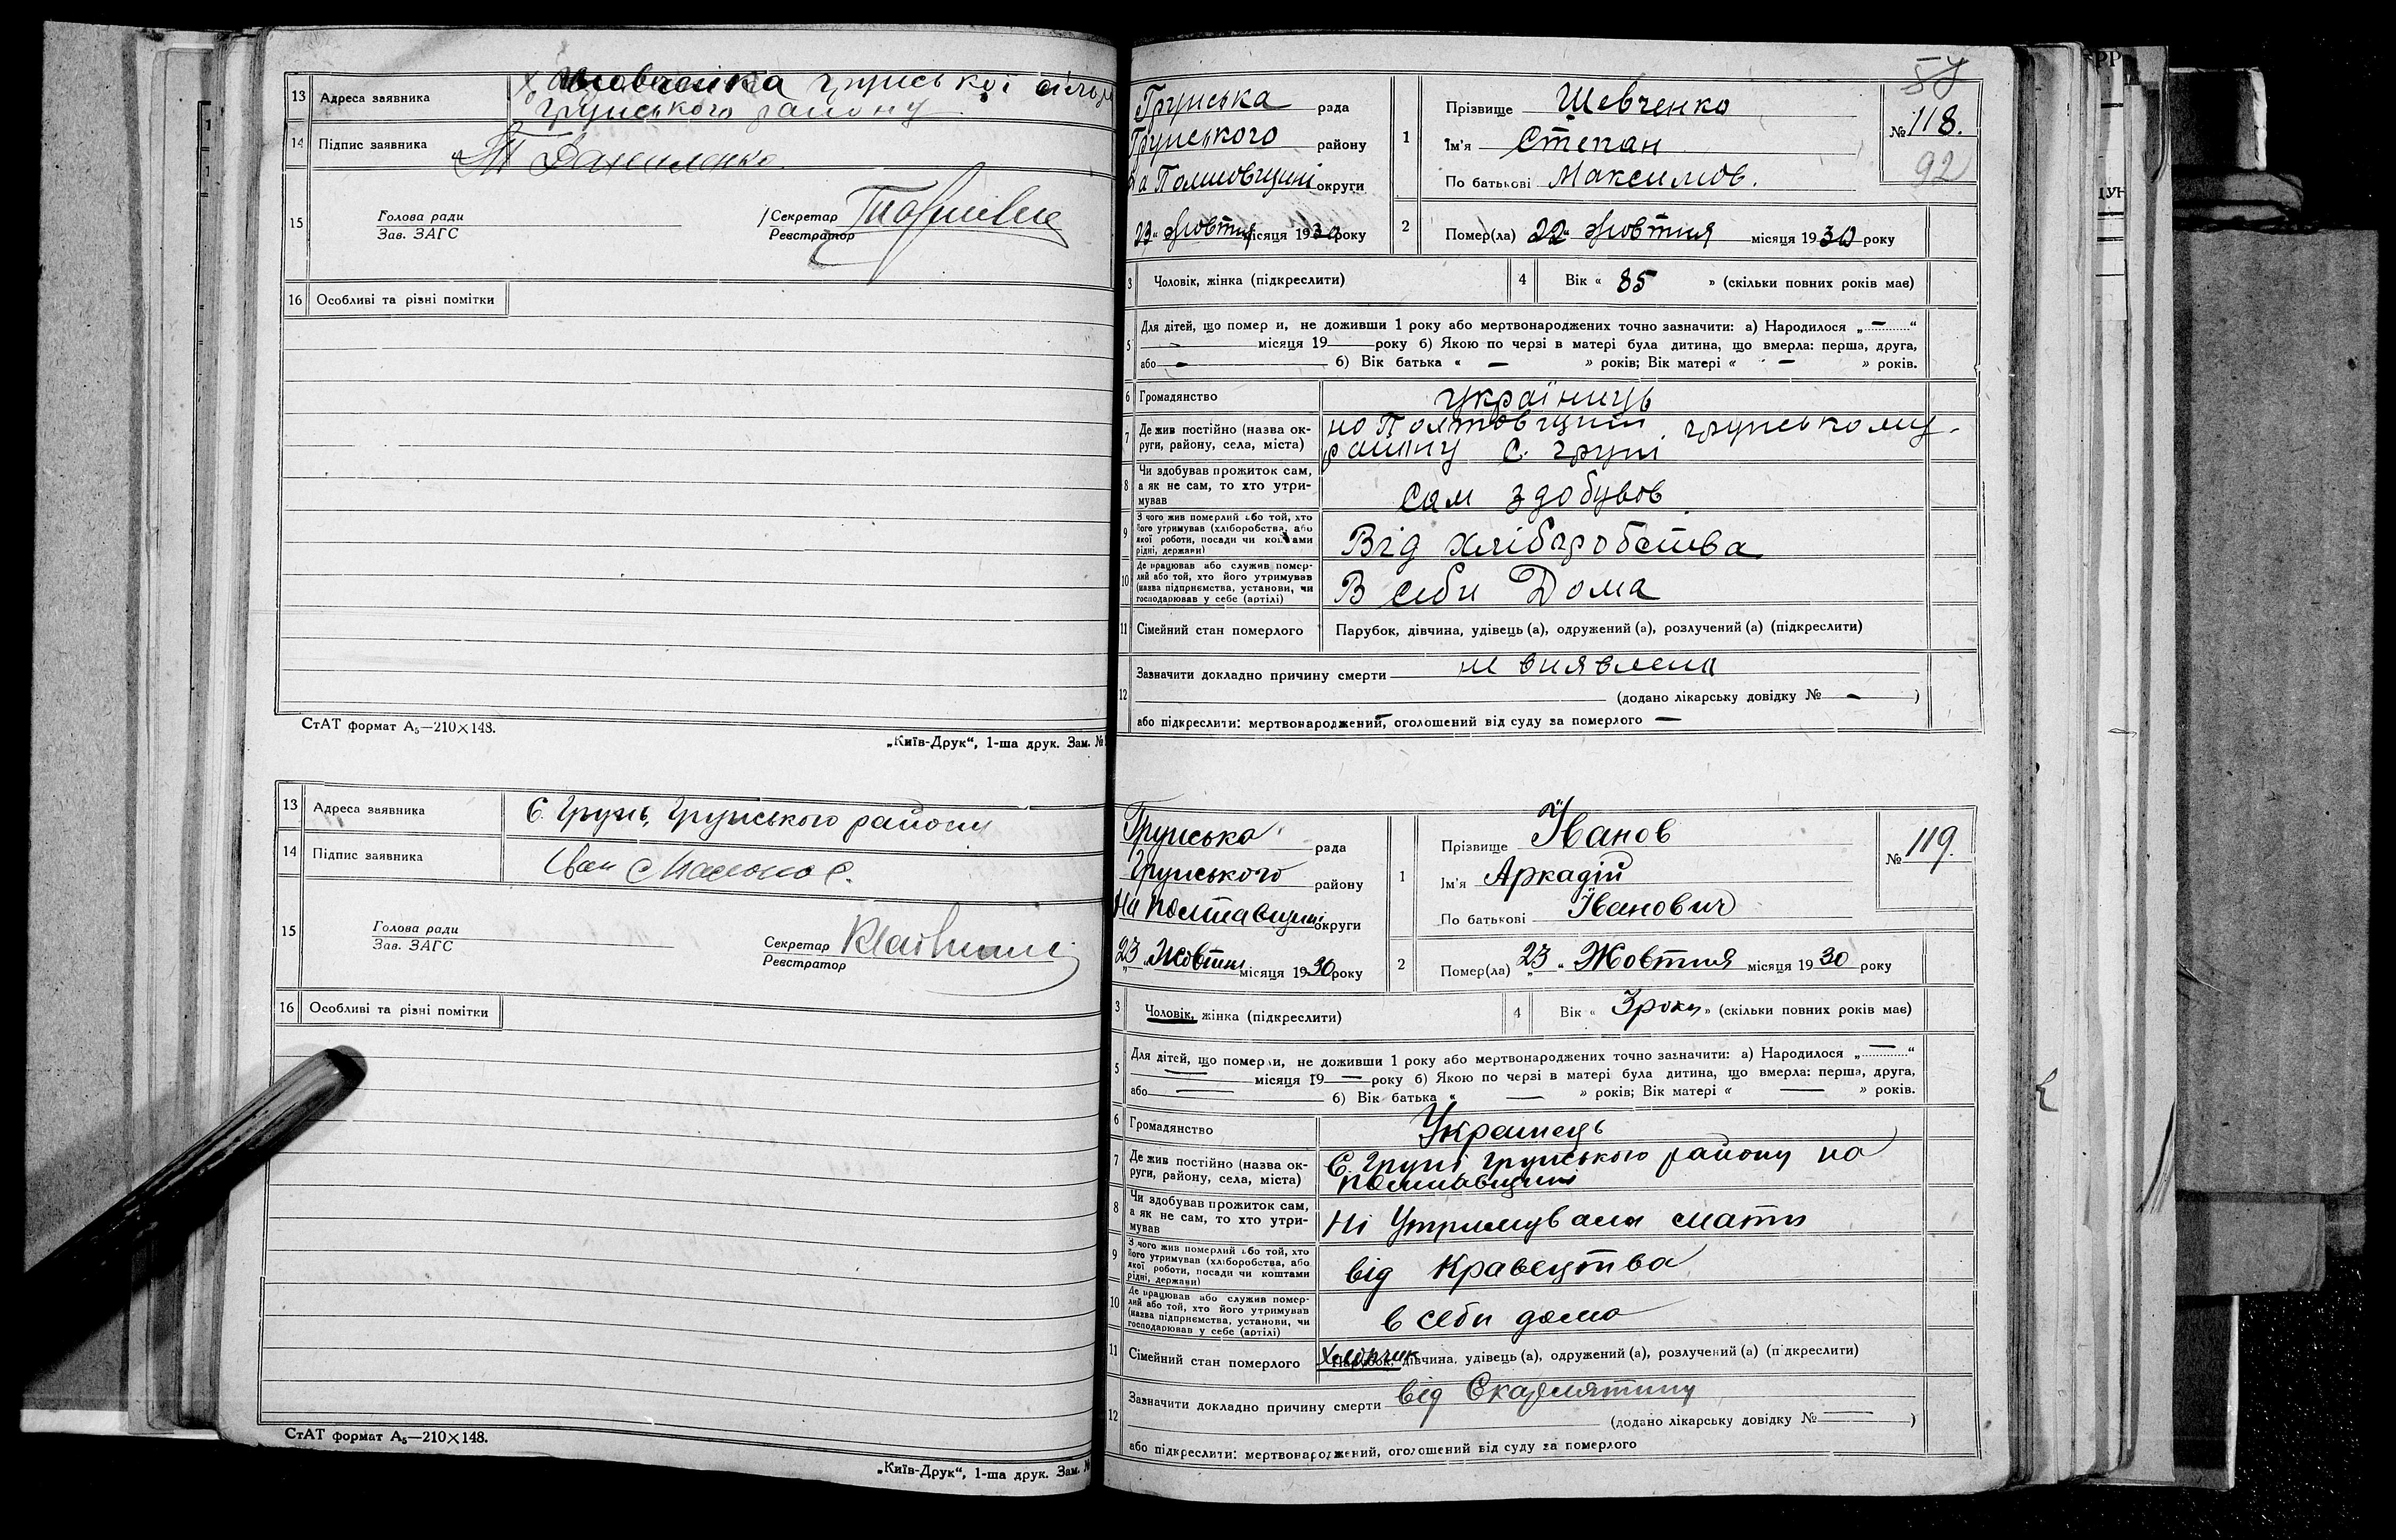 13 Адреса заявника
грунської
Грунського району
14 Підпис заявника Даниленко
15 Голова ради
Зав. ЗАГС
Секретар
Реєстратор
16 Особливі та різні помітки
СтАТ формат А₅—210×148.
„Київ-Друк“, 1-ша друк. Зам. №
13 Адреса заявника С. Грунь, Грунського району
14 Підпис заявника Іван
15 Голова ради
Зав. ЗАГС
Секретар
Реєстратор
16 Особливі та різні помітки
СтАТ формат А₅—210×148.
„Київ-Друк“, 1-ша друк. Зам. №
57
Грунська рада
Грунського району
На Полтовщині округи
23 „ жовтня місяця 1930 року
1 Прізвище Шевченко
Ім'я Степан
По батькові Максимов.
№ 118.
92
2 Помер(ла) 22 „ жовтня місяця 1930 року
3 Чоловік, жінка (підкреслити) 4 Вік « 85 » (скільки повних років має)
5 Для дітей, що померли, не доживши 1 року або мертвонароджених точно зазначити: а) Народилося „ — “
— місяця 19 року б) Якою по черзі в матері була дитина, що вмерла: перша, друга,
або — б) Вік батька « — » років; Вік матері « — » років.
6 Громадянство українець
7 Де жив постійно (назва округи, району, села, міста) на Полтовщині грунському
району С. груні
8 Чи здобував прожиток сам, а як не сам, то хто утримував Сам здобував
9 З чого жив померлий або той, хто його утримував (хліборобства, або якої роботи, посади чи коштами рідні, держави) Від хліборобства
10 Де працював або служив померлий або той, хто його утримував (назва підприємства, установи, чи господарював у себе (артілі) В себи Дома
11 Сімейний стан померлого Парубок, дівчина, удівець (а), одружений (а), розлучений (а) (підкреслити)
12 Зазначити докладно причину смерти не виявлена
(додано лікарську довідку № — )
або підкреслити: мертвонароджений, оголошений від суду за померлого —
Грунська рада
Грунського району
На Полтавщині округи
23 „ Жовтня місяця 1930 року
1 Прізвище Іванов
Ім'я Аркадій
По батькові Іванович
№ 119.
2 Помер(ла) „ 23 “ Жовтня місяця 1930 року
3 Чоловік, жінка (підкреслити) 4 Вік « 3 роки » (скільки повних років має)
5 Для дітей, що померли, не доживши 1 року або мертвонароджених точно зазначити: а) Народилося „ — “
— місяця 19 — року б) Якою по черзі в матері була дитина, що вмерла: перша, друга,
або — б) Вік батька « — » років; Вік матері « — » років.
6 Громадянство Українець
7 Де жив постійно (назва округи, району, села, міста) С. Груні грунського району на
Полтавщині
8 Чи здобував прожиток сам, а як не сам, то хто утримував Ні Утримувала мати
9 З чого жив померлий або той, хто його утримував (хліборобства, або якої роботи, посади чи коштами рідні, держави) від Кравецтва
10 Де працював або служив померлий або той, хто його утримував (назва підприємства, установи, чи господарював у себе (артілі) в себи дома
11 Сімейний стан померлого Хлопчик Парубок, дівчина, удівець (а), одружений (а), розлучений (а) (підкреслити)
12 Зазначити докладно причину смерти від Скарлятини
(додано лікарську довідку № — )
або підкреслити: мертвонароджений, оголошений від суду за померлого